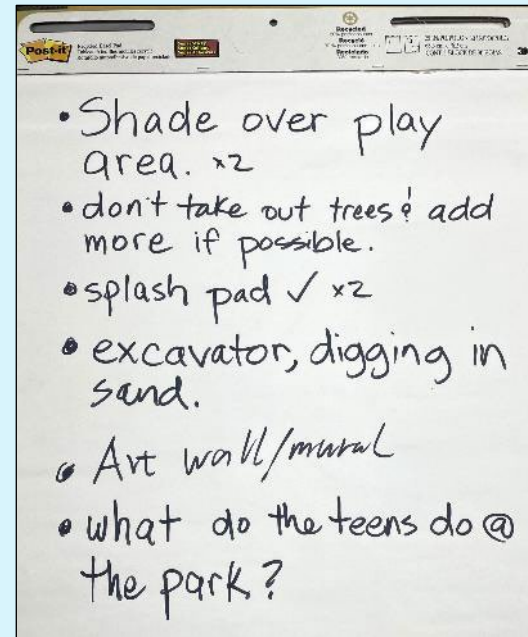 Post-it
Recycled
Recyclé
Reciclado
• Shade over play
area. x2
• don't take out trees & add
more if possible.
• splash pad ✓ x2
• excavator, digging in
sand.
• Art wall/mural
• what do the teens do @
the park?